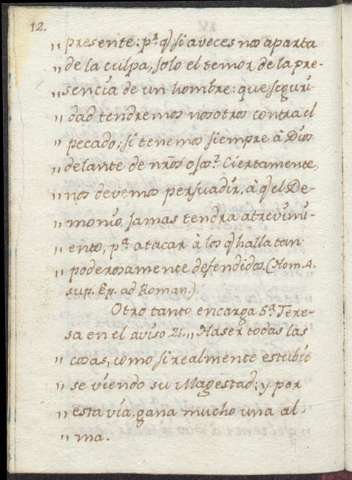 12.
,, presente: pr. q̃ si aveces nos aparta
,, de la culpa, solo el temor de la pre-
,, sencia de un hombre: que seguri-
,, dad tendremos nosotros contra el
,, pecado, si tenemos siempre â Dios
,, delante de nr̃os ojos? Ciertamente,
,, nos devemos persuadir, â q̃ el De-
,, monio jamas tendrâ atrevimi-
,, ento, pa. atacar â los q̃ halla tan
,, poderosamente defendidos. (Hom. A.
sup. Ep. ad Roman.).
Otro tanto encarga Sta. Tere-
sa en el aviso 21. ,, Haser todas las
,, cosas, como si realmente estubie
,, se viendo su Magestad; y por
,, esta vía gana mucho una al-
,, ma.